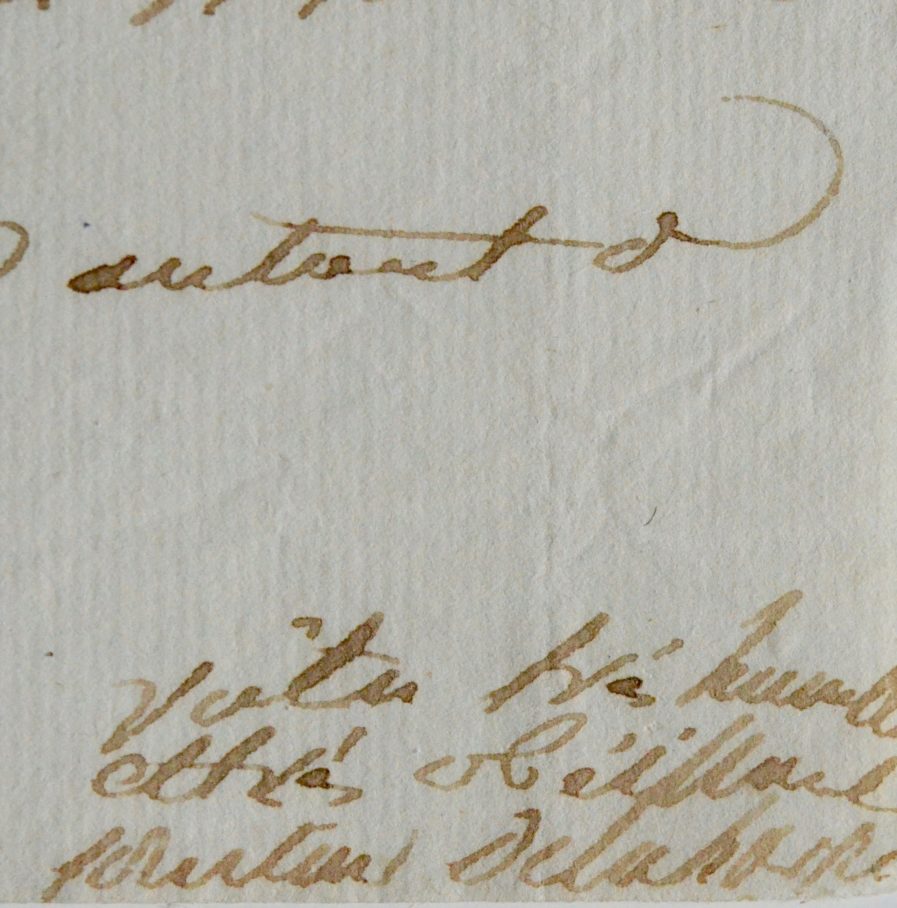 autant d
vôtre très humbl
et très obéissant
serviteur Delahoche